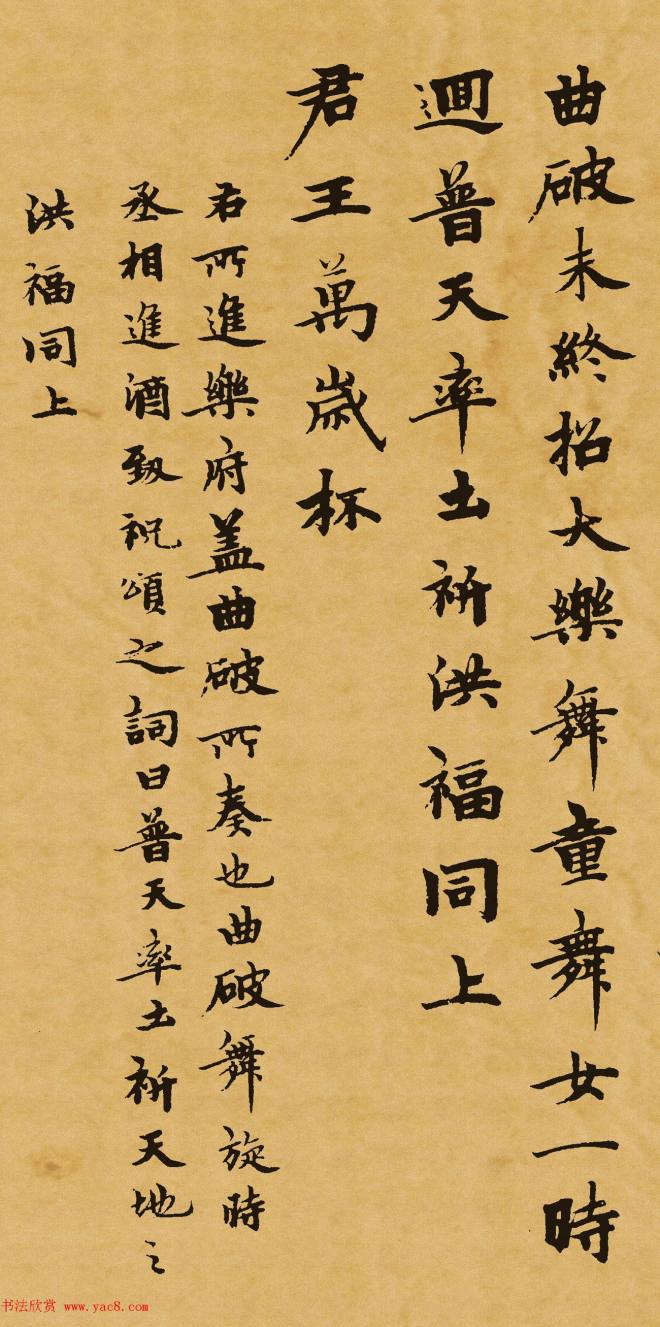 曲破未終招大樂舞童舞女一時
迴普天率土祈洪福同上
君王萬歲杯
右所進樂府盖曲破所奏也曲破舞旋時
丞相進酒致祝頌之詞曰普天率土祈天地之
洪福同上
书法欣赏 www.yac8.com